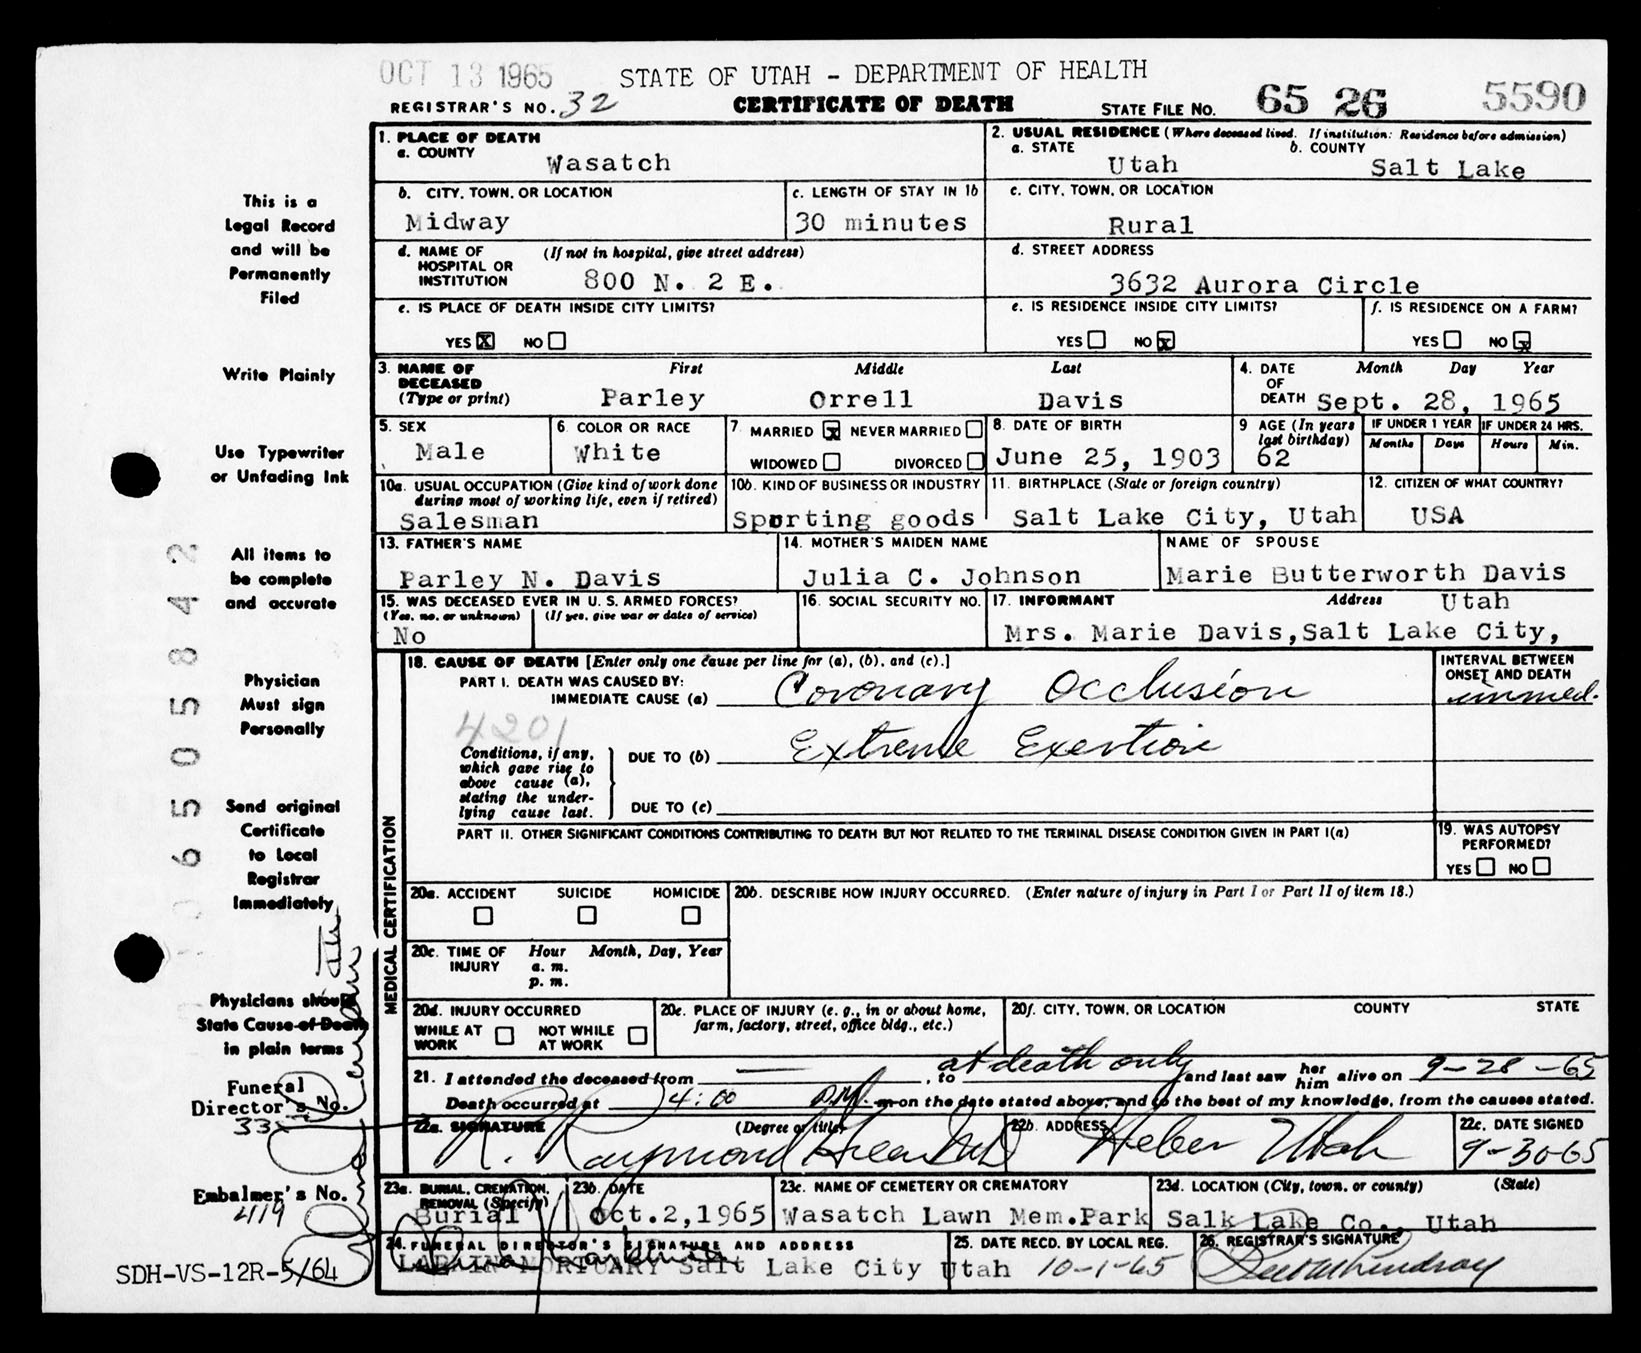 OCT 13 1965 STATE OF UTAH - DEPARTMENT OF HEALTH
REGISTRAR'S NO. 32 CERTIFICATE OF DEATH STATE FILE NO. 65 26 5590
1. PLACE OF DEATH
a. COUNTY
Wasatch
2. USUAL RESIDENCE (Where deceased lived. If institution: Residence before admission)
a. STATE b. COUNTY
Utah Salt Lake
b. CITY, TOWN, OR LOCATION c. LENGTH OF STAY IN 1b c. CITY, TOWN, OR LOCATION
Midway 30 minutes Rural
d. NAME OF HOSPITAL OR INSTITUTION (If not in hospital, give street address) d. STREET ADDRESS
800 N. 2 E. 3632 Aurora Circle
e. IS PLACE OF DEATH INSIDE CITY LIMITS? e. IS RESIDENCE INSIDE CITY LIMITS? f. IS RESIDENCE ON A FARM?
YES X NO YES NO X YES NO X
3. NAME OF DECEASED (Type or print) First Middle Last 4. DATE OF DEATH Month Day Year
Parley Orrell Davis Sept. 28, 1965
5. SEX 6. COLOR OR RACE 7. MARRIED X NEVER MARRIED 8. DATE OF BIRTH 9 AGE (In years last birthday) IF UNDER 1 YEAR IF UNDER 24 HRS.
Months Days Hours Min.
Male White WIDOWED DIVORCED June 25, 1903 62
10a. USUAL OCCUPATION (Give kind of work done during most of working life, even if retired) 10b. KIND OF BUSINESS OR INDUSTRY 11. BIRTHPLACE (State or foreign country) 12. CITIZEN OF WHAT COUNTRY?
Salesman Sporting goods Salt Lake City, Utah USA
13. FATHER'S NAME 14. MOTHER'S MAIDEN NAME NAME OF SPOUSE
Parley N. Davis Julia C. Johnson Marie Butterworth Davis
15. WAS DECEASED EVER IN U. S. ARMED FORCES? 16. SOCIAL SECURITY NO. 17. INFORMANT Address Utah
(Yes, no, or unknown) (If yes, give war or dates of service)
No Mrs. Marie Davis, Salt Lake City,
MEDICAL CERTIFICATION
18. CAUSE OF DEATH [Enter only one cause per line for (a), (b), and (c).] INTERVAL BETWEEN ONSET AND DEATH
PART I. DEATH WAS CAUSED BY:
IMMEDIATE CAUSE (a) Coronary Occlusion immed.
4201
Conditions, if any, which gave rise to above cause (a), stating the underlying cause last.
DUE TO (b) Extreme Exertion
DUE TO (c)
PART II. OTHER SIGNIFICANT CONDITIONS CONTRIBUTING TO DEATH BUT NOT RELATED TO THE TERMINAL DISEASE CONDITION GIVEN IN PART I(a)
19. WAS AUTOPSY PERFORMED?
YES NO
20a. ACCIDENT SUICIDE HOMICIDE 20b. DESCRIBE HOW INJURY OCCURRED. (Enter nature of injury in Part I or Part II of item 18.)
20c. TIME OF INJURY Hour Month, Day, Year
a. m.
p. m.
20d. INJURY OCCURRED 20e. PLACE OF INJURY (e. g., in or about home, farm, factory, street, office bldg., etc.) 20f. CITY, TOWN, OR LOCATION COUNTY STATE
WHILE AT WORK NOT WHILE AT WORK
21. I attended the deceased from — , to at death only and last saw her him alive on 9-28-65
Death occurred at 4:00 P.M. m on the date stated above; and to the best of my knowledge, from the causes stated.
22a. SIGNATURE (Degree or title) 22b. ADDRESS 22c. DATE SIGNED
R. Raymond Green MD Heber Utah 9-30-65
23a. BURIAL, CREMATION, REMOVAL (Specify) 23b. DATE 23c. NAME OF CEMETERY OR CREMATORY 23d. LOCATION (City, town, or county) (State)
Burial Oct.2,1965 Wasatch Lawn Mem.Park Salk Lake Co., Utah
24. FUNERAL DIRECTOR'S SIGNATURE AND ADDRESS 25. DATE RECD. BY LOCAL REG. 26. REGISTRAR'S SIGNATURE
LARKIN MORTUARY Salt Lake City Utah 10-1-65
This is a
Legal Record
and will be
Permanently
Filed
Write Plainly
Use Typewriter
or Unfading Ink
All items to
be complete
and accurate
Physician
Must sign
Personally
Send original
Certificate
to Local
Registrar
Immediately
Physicians should
State Cause of Death
in plain terms
Funeral
Director's No.
33
Embalmer's No.
419
SDH-VS-12R-5/64
065505842